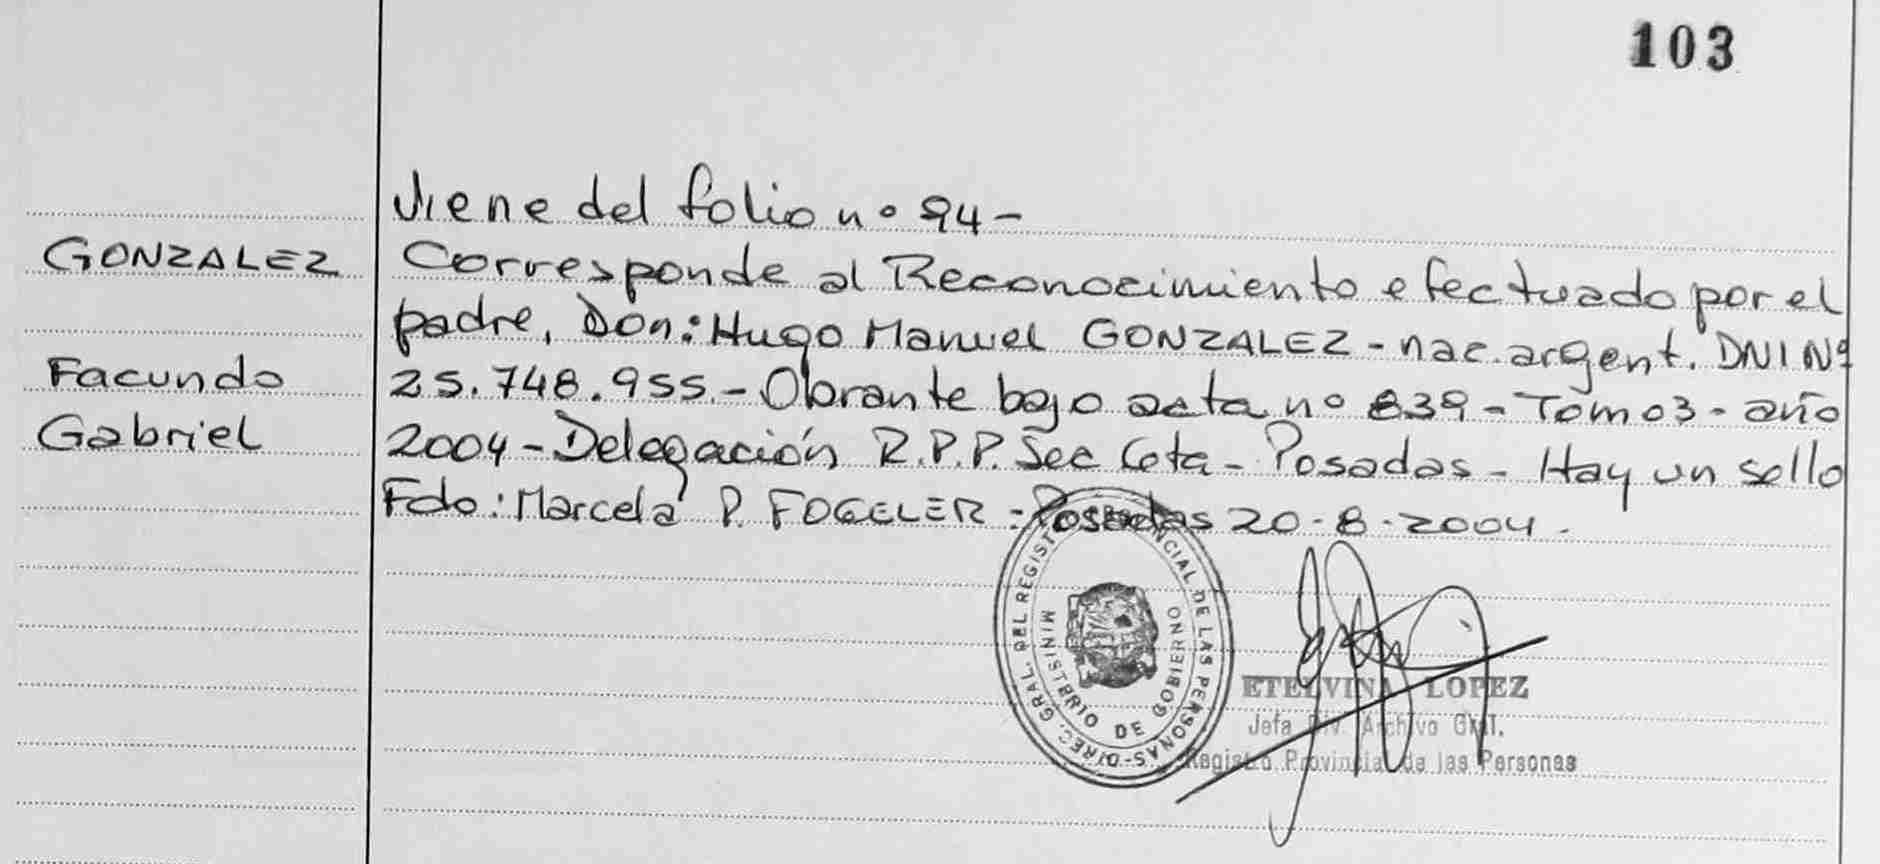 103
Viene del folio nº 94 -
GONZALEZ
Corresponde al Reconocimiento efectuado por el
padre, Don: Hugo Manuel GONZALEZ - nac. argent. DNI Nº
Facundo
25.748.955 - Obrante bajo acta nº 839 - Tomo 3 - año
Gabriel
2004 - Delegación R.P.P. Sec Cota - Posadas - Hay un sello
Fdo: Marcela P. FOGELER - Posadas 20-8-2004.
DIREC. GRAL. DEL REGISTRO PROVINCIAL DE LAS PERSONAS
MINISTERIO DE GOBIERNO
ETELVINA LOPEZ
Jefa Div. Archivo Gral.
Registro Provincial de las Personas